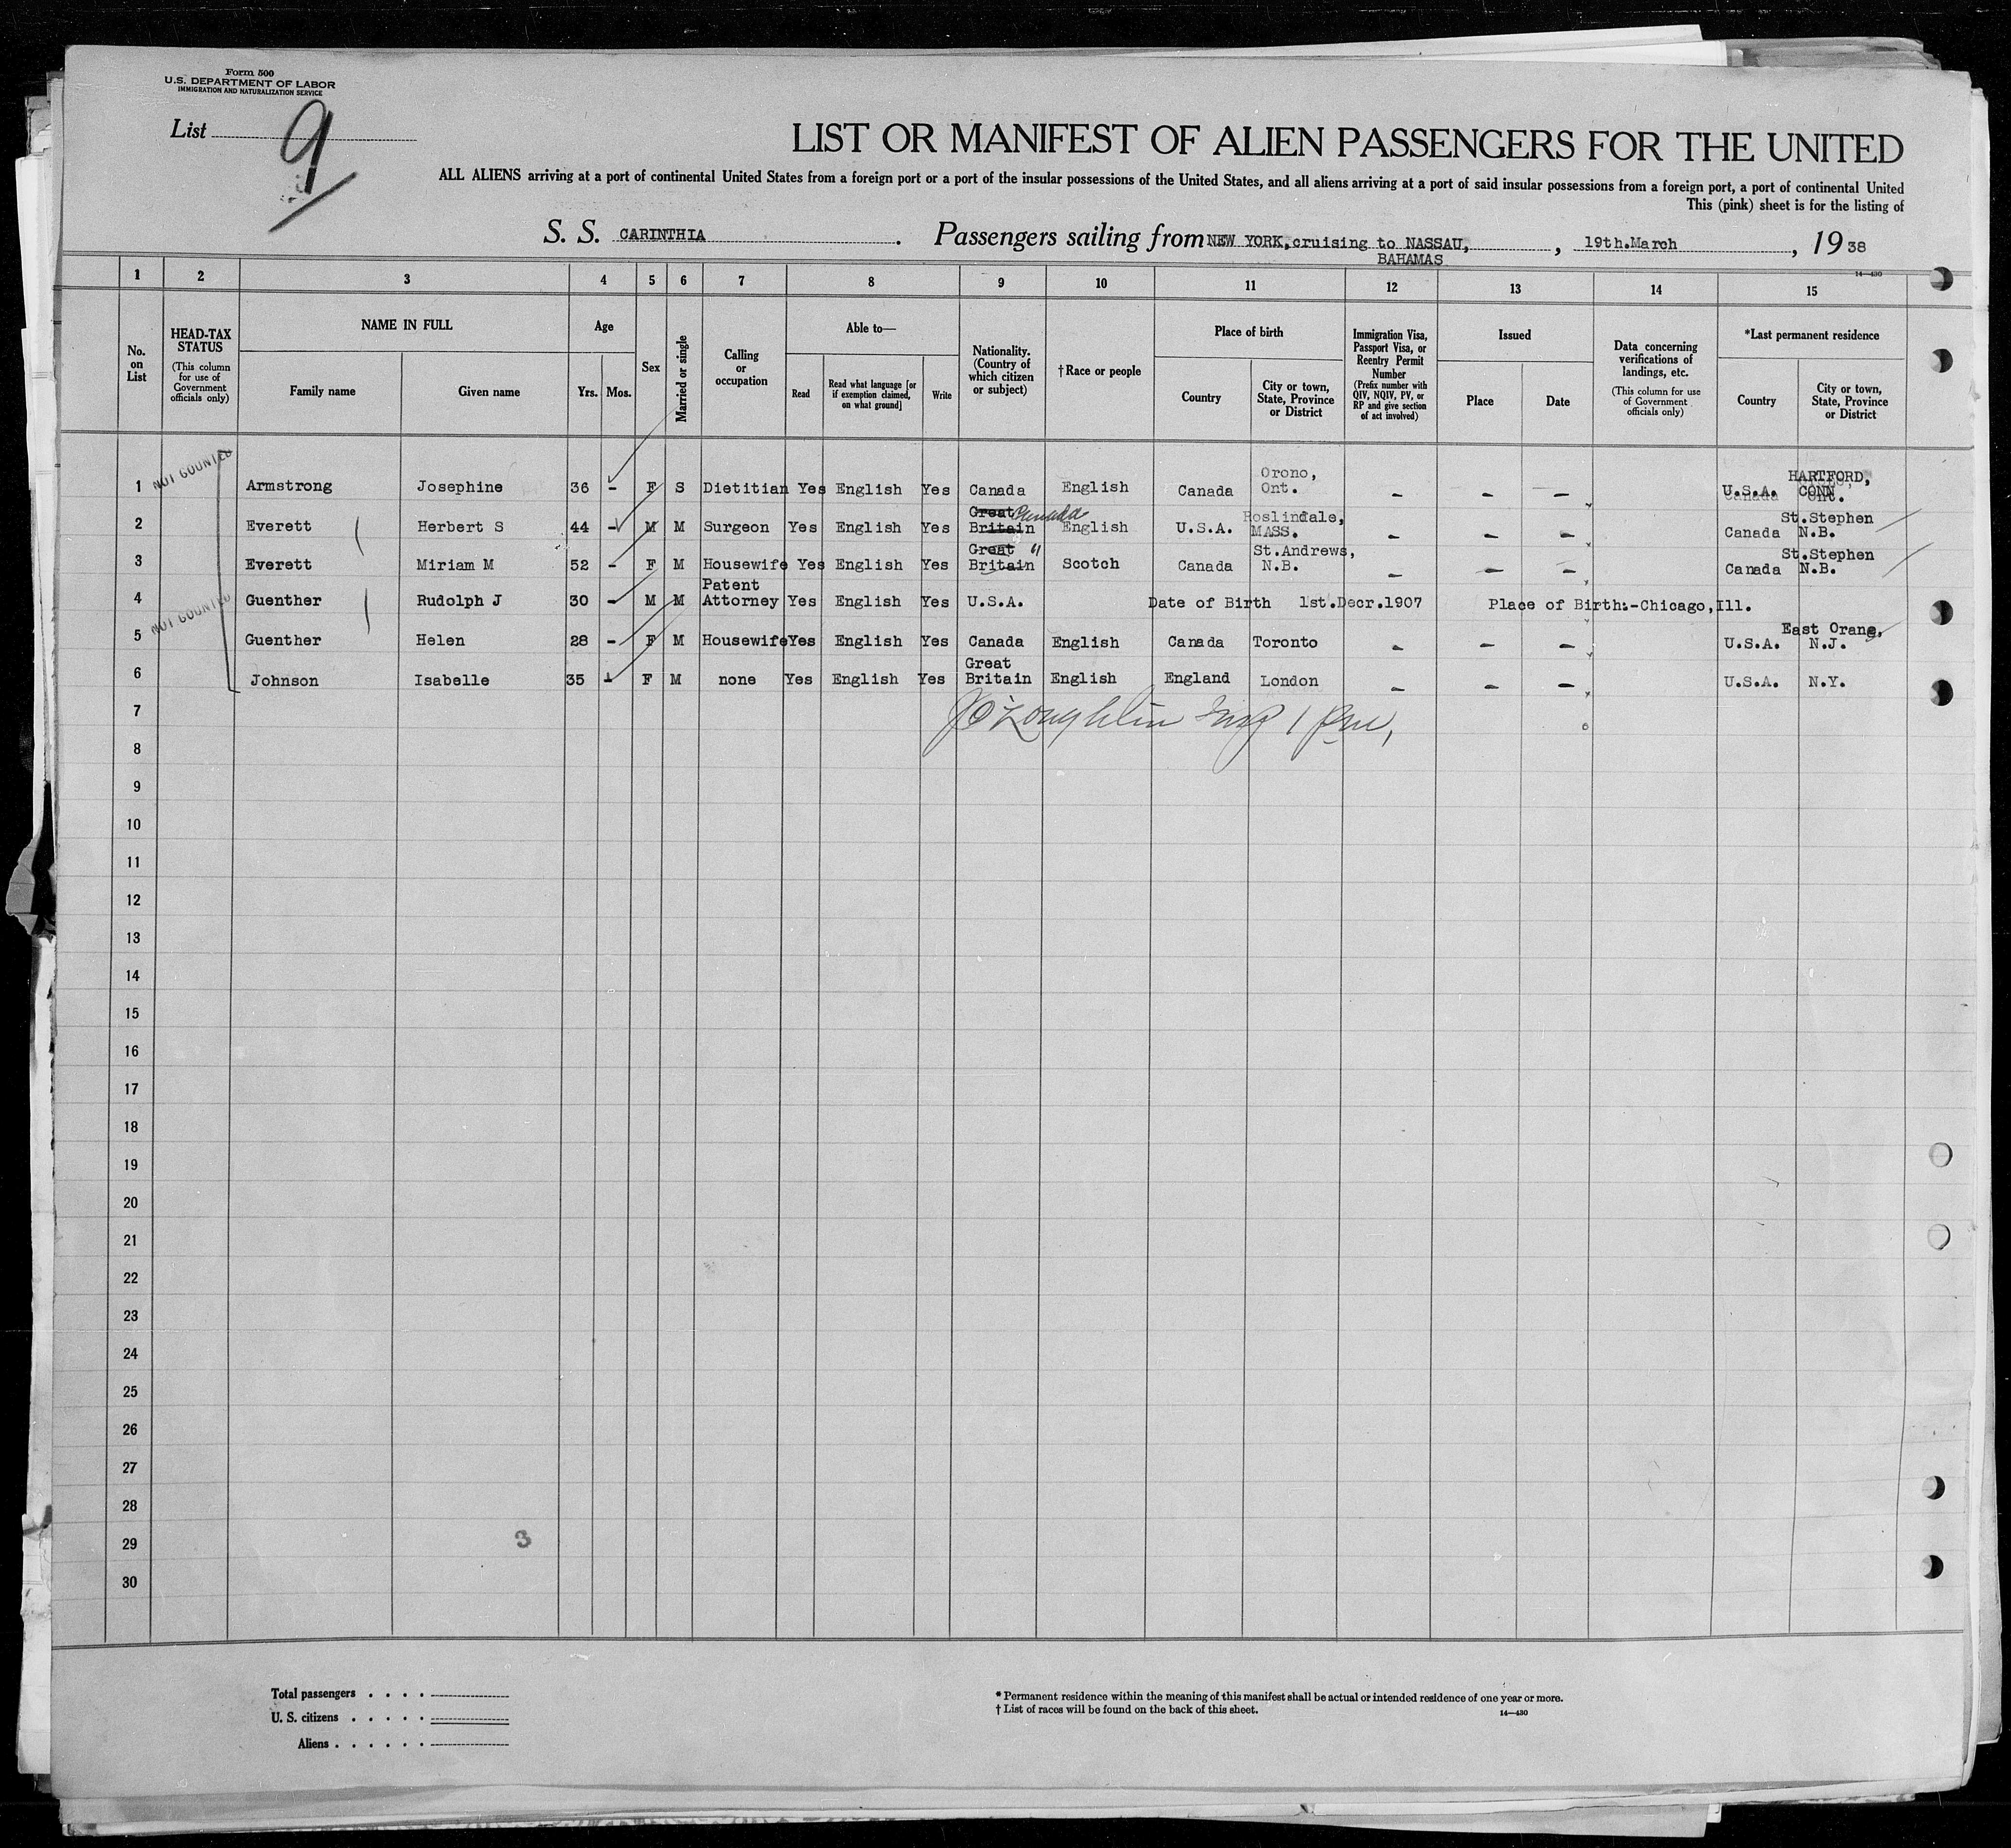 Form 500
U.S. DEPARTMENT OF LABOR
IMMIGRATION AND NATURALIZATION SERVICE
List 9
LIST OR MANIFEST OF ALIEN PASSENGERS FOR THE UNITED
ALL ALIENS arriving at a port of continental United States from a foreign port or a port of the insular possessions of the United States, and all aliens arriving at a port of said insular possessions from a foreign port, a port of continental United
This (pink) sheet is for the listing of
S. S. CARINTHIA. Passengers sailing from NEW YORK, cruising to NASSAU, BAHAMAS, 19th.March, 1938
14—430
1 2 3 4 5 6 7 8 9 10 11 12 13 14 15
No. on List
HEAD-TAX STATUS (This column for use of Government officials only)
NAME IN FULL Family name Given name
Age Yrs. Mos.
Sex
Married or single
Calling or occupation
Able to— Read Read what language [or if exemption claimed, on what ground] Write
Nationality. (Country of which citizen or subject)
†Race or people
Place of birth Country City or town, State, Province or District
Immigration Visa, Passport Visa, or Reentry Permit Number (Prefix number with QIV, NQIV, PV, or RP and give section of act involved)
Issued Place Date
Data concerning verifications of landings, etc. (This column for use of Government officials only)
*Last permanent residence Country City or town, State, Province or District
1 NOT COUNTED Armstrong Josephine 36 - F S Dietitian Yes English Yes Canada English Canada Orono, Ont. - - - U.S.A. HARTFORD, CONN.
2 Everett Herbert S 44 - M M Surgeon Yes English Yes Great Britain Canada English U.S.A. Roslindale, MASS. - - - Canada St.Stephen N.B.
3 Everett Miriam M 52 - F M Housewife Yes English Yes Great Britain " Scotch Canada St.Andrews, N.B. - - - Canada St.Stephen N.B.
4 NOT COUNTED Guenther Rudolph J 30 - M M Patent Attorney Yes English Yes U.S.A. Date of Birth 1st.Decr.1907 Place of Birth:-Chicago,Ill.
5 Guenther Helen 28 - F M Housewife Yes English Yes Canada English Canada Toronto - - - U.S.A. East Orang, N.J.
6 Johnson Isabelle 35 - F M none Yes English Yes Great Britain English England London - - - U.S.A. N.Y.
7
8
9
10
11
12
13
14
15
16
17
18
19
20
21
22
23
24
25
26
27
28
29
30
3
Total passengers . . . .
U. S. citizens . . . . .
Aliens . . . . . .
* Permanent residence within the meaning of this manifest shall be actual or intended residence of one year or more.
† List of races will be found on the back of this sheet.
14—430